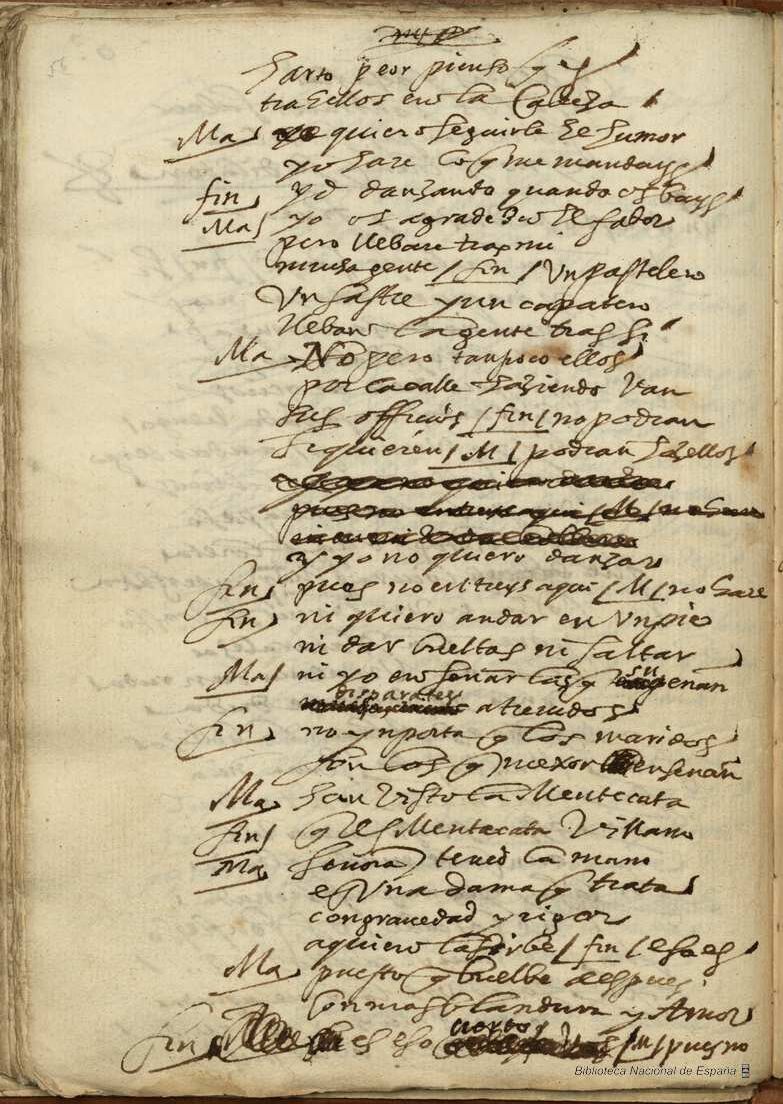 harto peor pienso q es
traHellos en la Cabeza
Ma quiero seguirle el humor
yo hare lo q me mandays
fin yd danzando quando os bays
Ma yo os agradezco el fabor
pero llebare tras mi
mucha gente / fin / Un pastelero
Un sastre y un capatero
lleban la gente tras si
Ma No pero tanpoco ellos
por la calle haziendo van
sus officios / fin / no podran
si quieren / M / podran hazellos
y yo no quiero danzar
fin pues no entreys aqui / M / no hare
fin ni quiero andar en Un pie
ni dar bueltas ni saltar
Ma ni yo ensenar las q su enan
disparates atreuidos
fin no ynporta q los maridos
son los q mexor ensenan
Ma han Visto la Mentecata
fin q es Mentecata Villano
Ma señora tened la mano
es Una dama q trata
con gravedad y rigor
a quien la sirbe / fin / eso es
Ma puesto q buelbe despues
con mas blandura y Amor
fin es eso cierto / M / pues no
Biblioteca Nacional de España